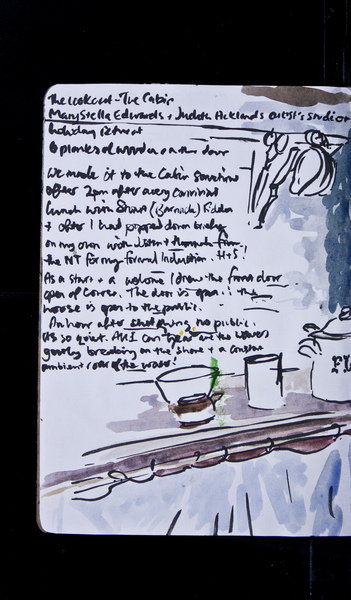 The Lookout - The Cabin
Mary Stella Edwards + Judith Acklands artist's studio or
holiday retreat
6 planks of wood on the door
We made it to the Cabin sometime
after 2pm after a very convivial
lunch with
+ after I had popped down
on my own with + from
the NT for my formal Induction. H+S!
As a start + a welcome I drew the front door
open of course. The door is open!! The
house is open to the public.
An hour after no public.
It's so quiet. All I can hear are the waves
gently breaking on the shore + a constant
ambient roar of the waves!
FL